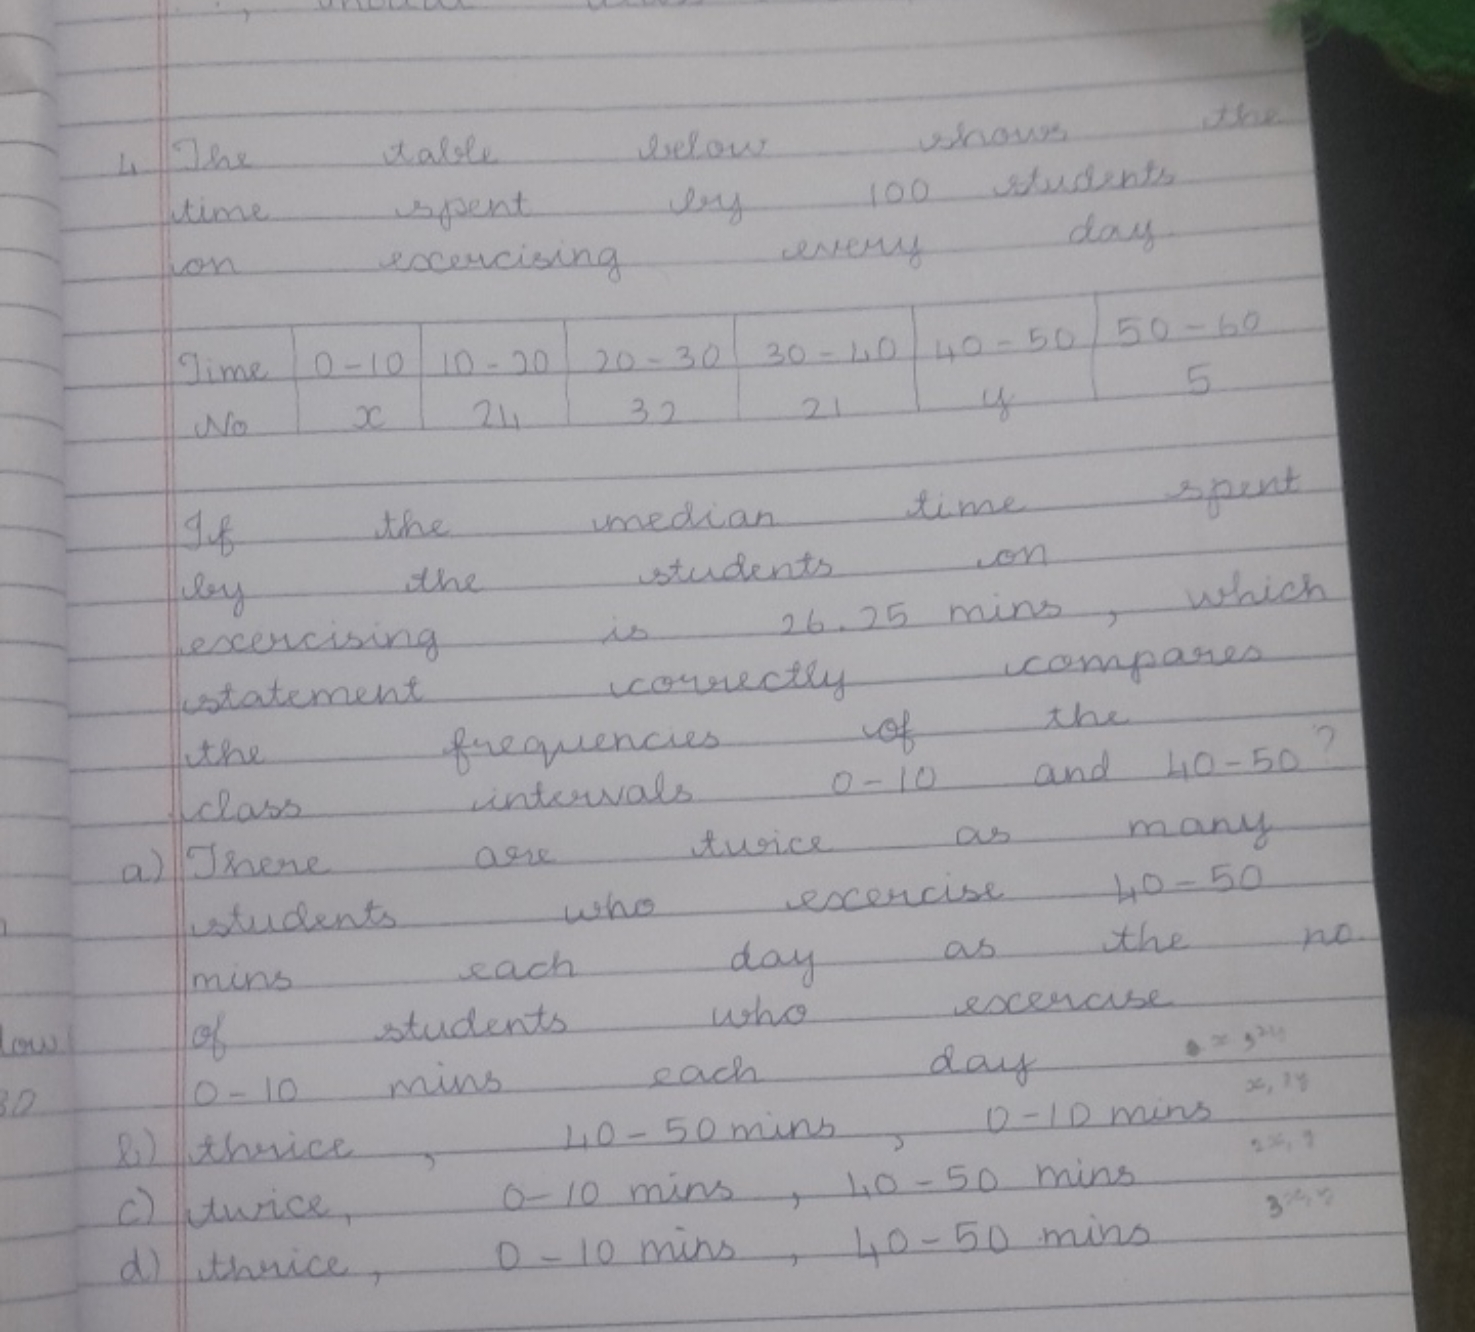 4. The table below shows the
time spent by 100 students
on excercising every day
Time 0-10 10-20 20-30 30-40 40-50 50-60
No x 24 32 21 y 5
If the median time spent
by the students on
excercising is 26.25 mins, which
statement correctly compares
the frequencies of the
class intervals 0-10 and 40-50?
a) There are twice as many
students who excercise 40-50
mins each day as the no
low of students who excercise
30 0-10 mins each day
b) thrice, 40-50 mins, 0-10 mins
c) twice, 0-10 mins, 40-50 mins
d) thrice, 0-10 mins, 40-50 mins